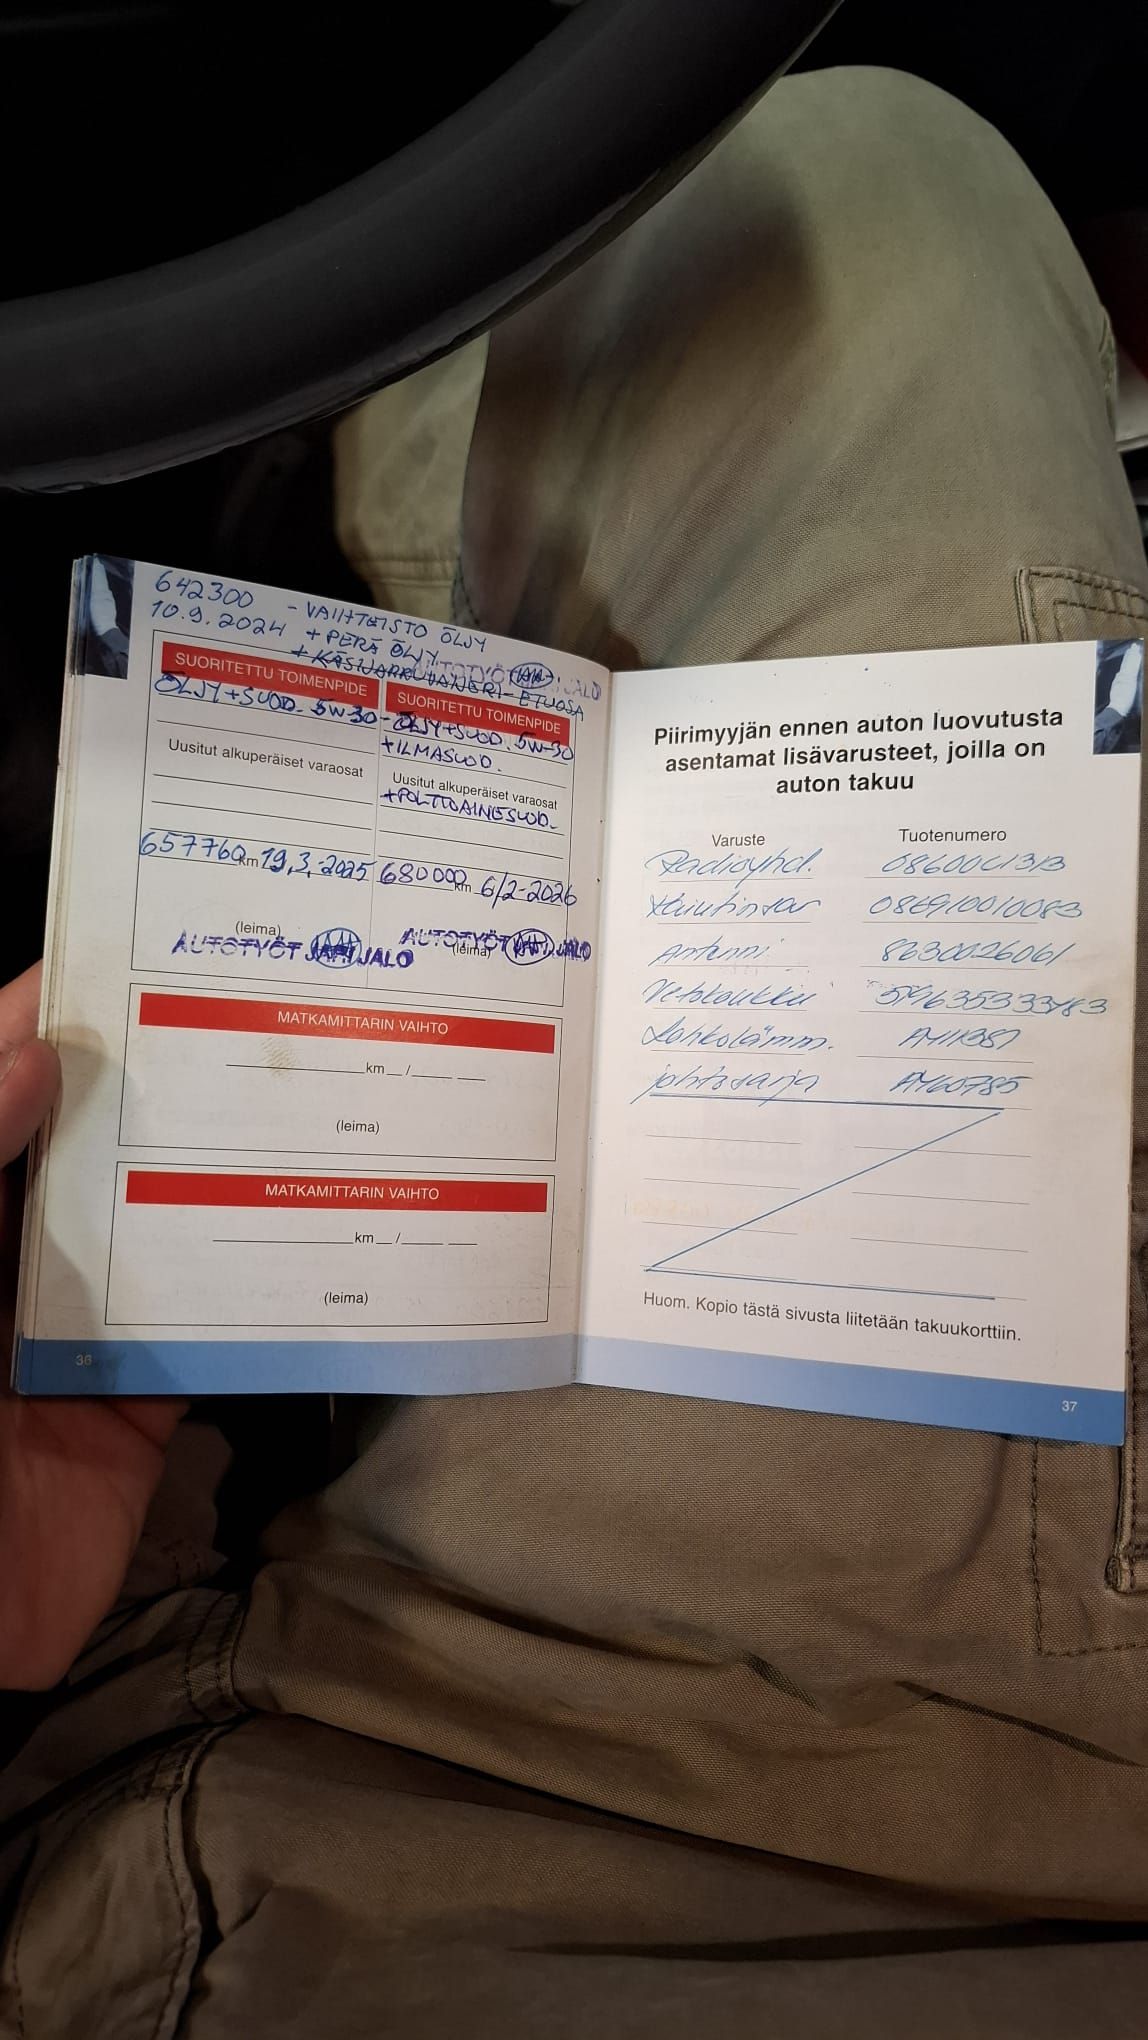 642300 - VAIHTEISTO ÖLJY
10.9.2024 + PERÄ ÖLJY
+ KÄSIJARRUVANERI - ETUOSA
SUORITETTU TOIMENPIDE
ÖLJY+SUOD. 5W-30
Uusitut alkuperäiset varaosat
657760 km 19.3.-2025
(leima)
AUTOTYÖT JALO
SUORITETTU TOIMENPIDE
- ÖLJY+SUOD. 5W-30
+ILMASUOD.
Uusitut alkuperäiset varaosat
+POLTTOAINESUOD.
680000 km 6/2-2026
(leima)
AUTOTYÖT JALO
MATKAMITTARIN VAIHTO
km /
(leima)
MATKAMITTARIN VAIHTO
km /
(leima)
36
Piirimyyjän ennen auton luovutusta
asentamat lisävarusteet, joilla on
auton takuu
Varuste Tuotenumero
Radioyhd.
Kaiutinsar
Antenni 8630026061
Vetokoukku
Lohkolämm.
johtosarja AY60785
Huom. Kopio tästä sivusta liitetään takuukorttiin.
37